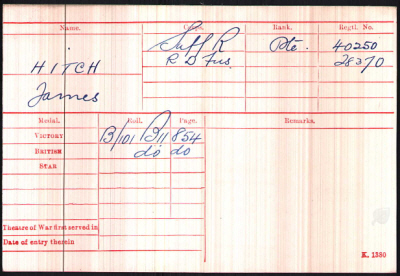 Name. Corps. Rank. Regtl. No.
Suff R Pte. 40250
HITCH R D Fus. 28370
James
Medal. Roll. Page. Remarks.
VICTORY B/101 B11 854
BRITISH do do
STAR
Theatre of War first served in
Date of entry therein
K. 1380